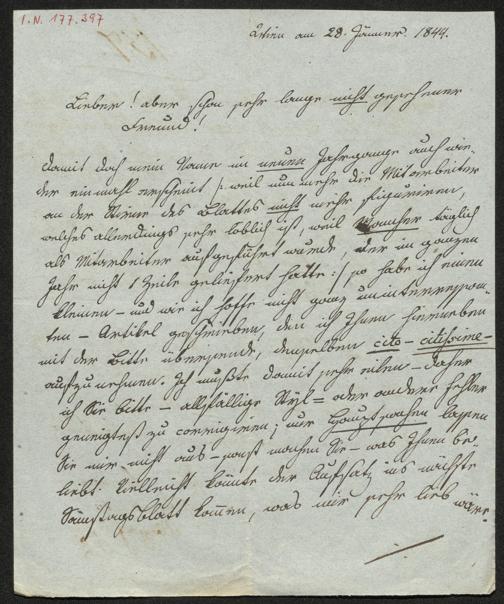 I.N. 177.397
Wien am 28. Jänner 1844.
Lieber! aber schon sehr lange nicht gesehener
Freund!
Damit doch mein Name im neuen Jahrgange auch wie-
der einmahl erscheint /: weil nun mehr die Mitarbeiter
an der Stirne des Blattes nicht mehr figuriren,
welches allerdings sehr löblich ist, weil Mancher täglich
als Mitarbeiter aufgeführt wurde, der im ganzen
Jahr nicht 1 Zeile geliefert hatte :/ so habe ich einen
kleinen – und wie ich hoffe nicht ganz uninteressan-
ten – Artikel geschrieben, den ich Ihnen hierneben
mit der Bitte übersende, denselben cito – citissime –
aufzunehmen. Ich mußte damit sehr eilen – daher
ich Sie bitte – allfällige Styl= oder andere Fehler
geneigtest zu corrigiren; nur Hauptsachen lassen
Sie mir nicht aus – sonst machen Sie – was Ihnen be-
liebt. Vielleicht könnte der Aufsatz ins nächste
Samstagsblatt kommen, was mir sehr lieb wäre.